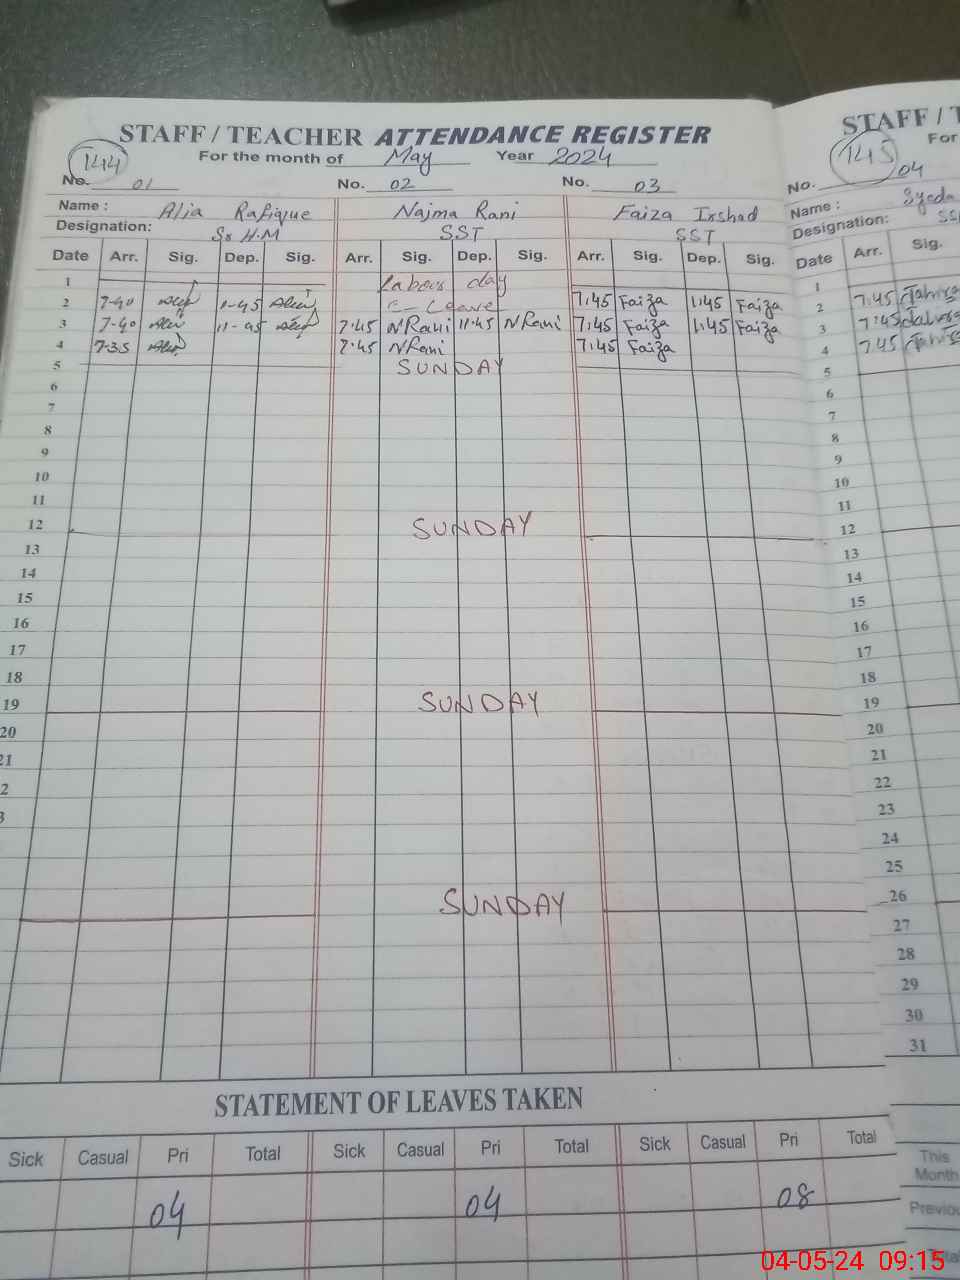 STAFF / TEACHER ATTENDANCE REGISTER
144 For the month of May Year 2024
No. 01 No. 02 No. 03
Name : Alia Rafique Najma Rani Faiza Irshad
Designation: Sr H.M SST SST
Date Arr. Sig. Dep. Sig. Arr. Sig. Dep. Sig. Arr. Sig. Dep. Sig.
1 Labour day
2 7-40 1-45 C Leave 7:45 Faiza 1:45 Faiza
3 7-40 11-45 7:45 NRani 11:45 NRani 7:45 Faiza 1:45 Faiza
4 7-35 7:45 NRani 7:45 Faiza
5 SUNDAY
6
7
8
9
10
11
12 SUNDAY
13
14
15
16
17
18
19 SUNDAY
20
21
2
3
SUNDAY
STATEMENT OF LEAVES TAKEN
Sick Casual Pri Total Sick Casual Pri Total Sick Casual Pri Total
04 04 08
STAFF / T
145 For
No. 04
Name : Syeda
Designation: SS
Date Arr. Sig.
1
2 7:45
3 7:45
4 7:45
5
6
7
8
9
10
11
12
13
14
15
16
17
18
19
20
21
22
23
24
25
26
27
28
29
30
31
This
Month
Previou
Total
04-05-24 09:15